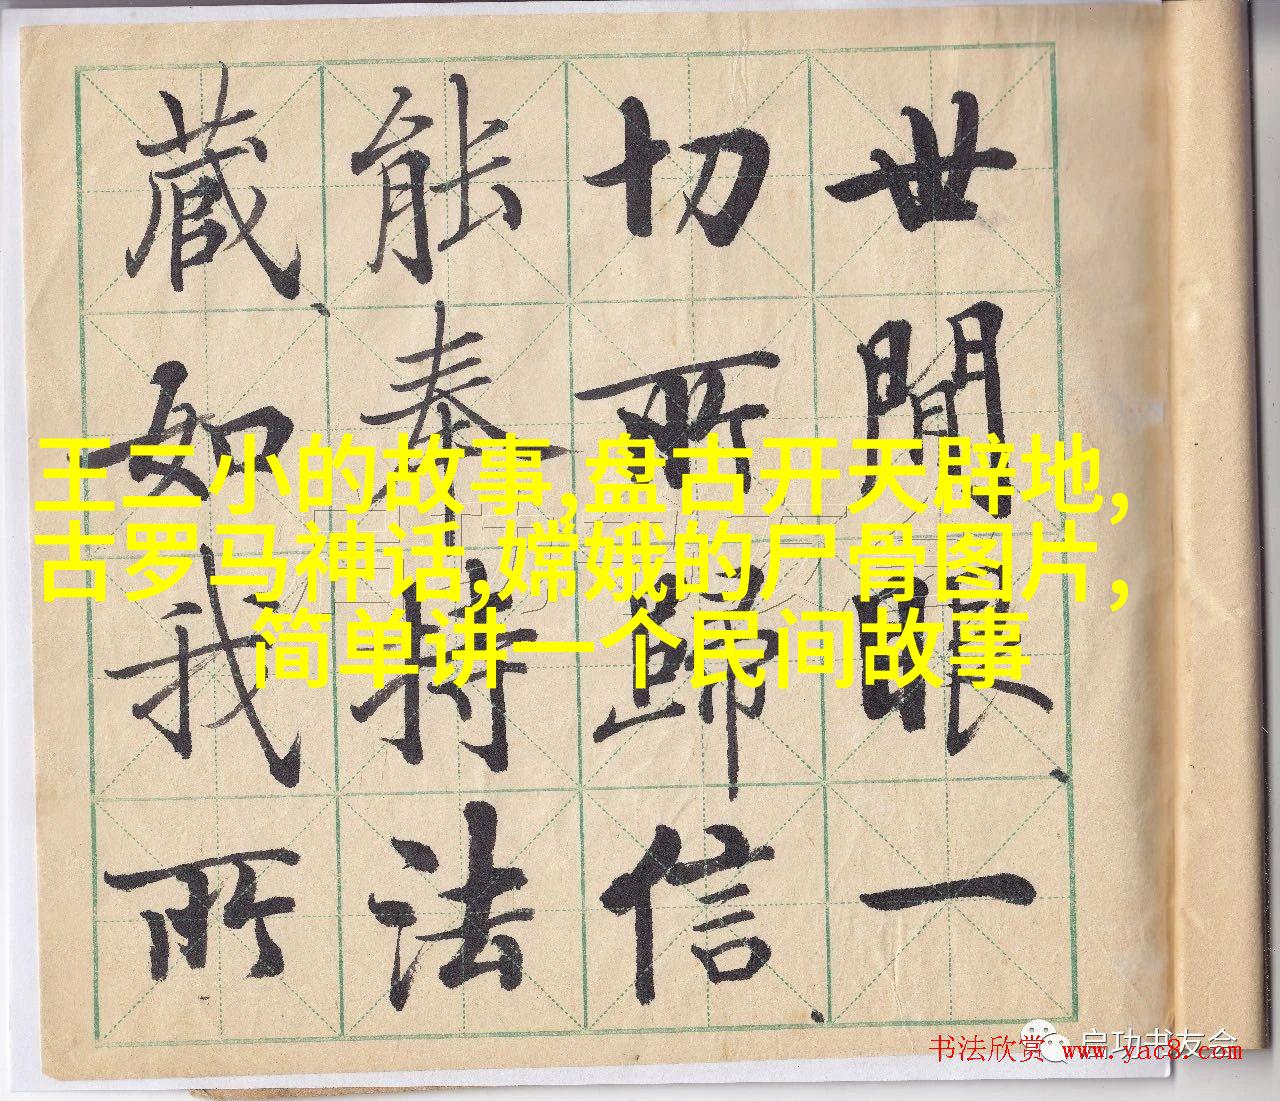 世間眼一
切所歸信
能奉持法
藏如我所
王二小的故事,盘古开天辟地,
古罗马神话,嫦娥的尸骨图片,
简单讲一个民间故事
启功书友会
书法欣赏 www.yac8.com